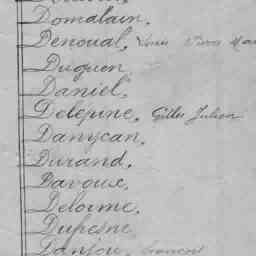 Domalain.
Denoual, Louis
Duguen
Daniel,
Delépine, Gilles Julien
Danycan,
Durand,
Davoux,
Delorme,
Dufresne,
Danjou, François